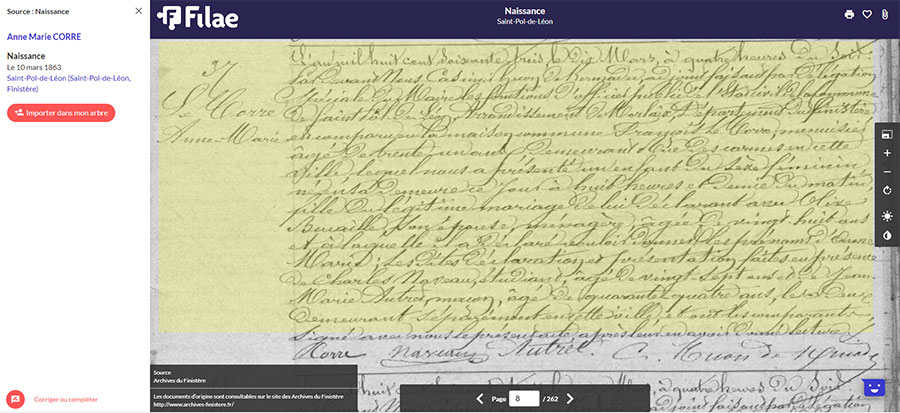 Source : Naissance
Anne Marie CORRE
Naissance
Le 10 mars 1863
Saint-Pol-de-Léon (Saint-Pol-de-Léon,
Finistère)
Importer dans mon arbre
Corriger ou compléter
Filae
Naissance
Saint-Pol-de-Léon
37
Le Corre
Anne-Marie
L'an mil huit cent soixante trois, le dix Mars, à quatre heures du Soir
Par devant Nous Casimir Huon de Kermadec, adjoint faisant par délégation
Spéciale du Maire les fonctions d'officier public de l'état civil de la commune
de Saint Pol de Léon, Arrondissement de Morlaix, Département du Finistère
est comparu en la maison commune François Le Corre, menuisier
âgé de trente un ans, demeurant rue des carmes en cette
ville lequel nous a présenté un enfant du sexe féminin
né en sa demeure ce jour à huit heures et demie du matin,
fille du légitime mariage de lui déclarant avec Olive
son épouse, ménagère, âgée de vingt huit ans
et à laquelle il a déclaré vouloir donner les prénoms d'Anne
Marie; les dites déclaration et présentation faites en présence
de Charles Naveau, étudiant, âgé de vingt sept ans et de Jean
Marie Autret, maçon, âgé de quarante quatre ans, les deux
demeurant séparément en cette ville, et ont les comparants
signé avec nous le présent acte après leur en avoir donné lecture
Corre Naveau Autret C. Huon de
mil huit cent soixante
à quatre heures du Soir
Source
Archives du Finistère
Les documents d'origine sont consultables sur le site des Archives du Finistère
http://www.archives-finistere.fr/
Page 8 / 262